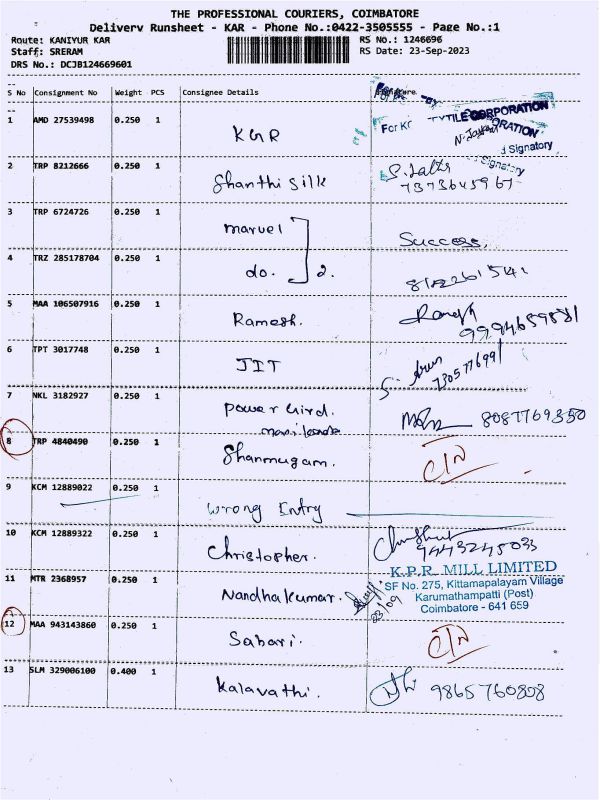 THE PROFESSIONAL COURIERS, COIMBATORE
Delivery Runsheet - KAR - Phone No.:0422-3505555 - Page No.:1
Route: KANIYUR KAR
RS No.: 1246696
Staff: SRERAM
RS Date: 23-Sep-2023
DRS No.: DCJB124669601
S No Consignment No Weight PCS Consignee Details
1 AMD 27539498 0.250 1 KGR
TILE CORPORATION
For
N. RATION
d Signatory
Signatory
2 TRP 8212666 0.250 1 Shanthi Silk
7373645967
3 TRP 6724726 0.250 1 marvel Success.
4 TRZ 285178704 0.250 1 do. 2.
5 MAA 106507916 0.250 1 Ramesh. 9994659881
6 TPT 3017748 0.250 1 JIT
7 NKL 3182927 0.250 1 Power Gird. 8087769350
8 TRP 4840490 0.250 1 Shanmugam.
9 KCM 12889022 0.250 1 wrong Entry
10 KCM 12889322 0.250 1 Christopher. 9443245033
11 MTR 2368957 0.250 1 Nandhakumar. 23/09
K.P.R. MILL LIMITED
SF No. 275, Kittamapalayam Village
Karumathampatti (Post)
Coimbatore - 641 659
12 MAA 943143860 0.250 1 Sabari.
13 SLM 329006100 0.400 1 Kalavathi. 9865760808